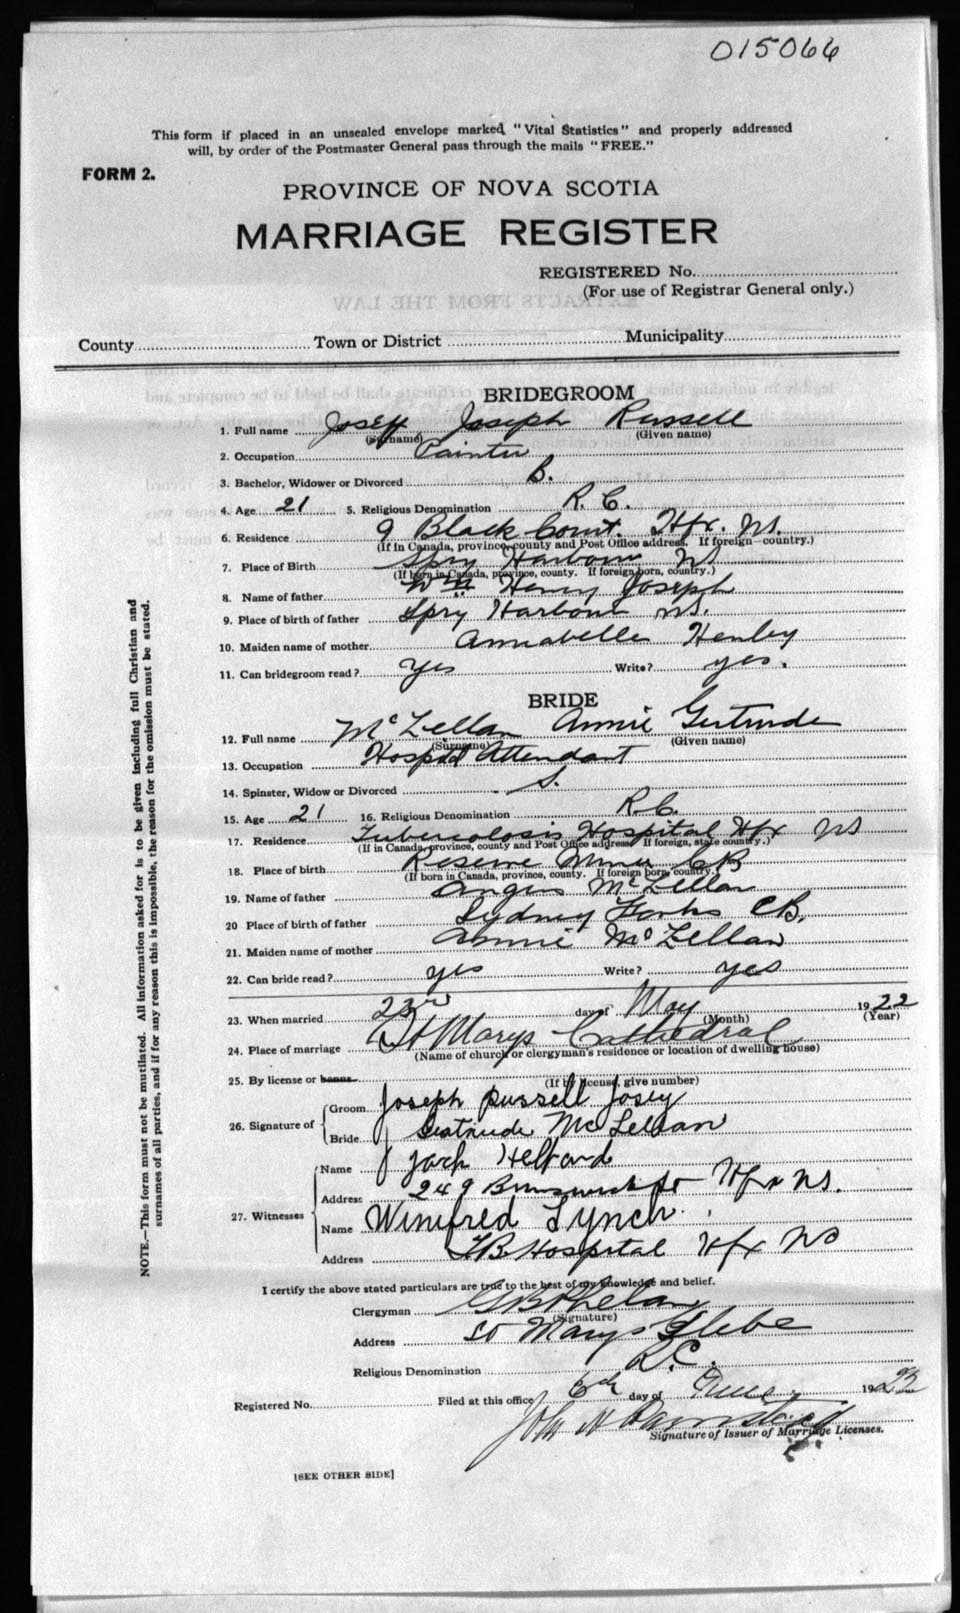 015066
This form if placed in an unsealed envelope marked, "Vital Statistics" and properly addressed
will, by order of the Postmaster General pass through the mails "FREE."
FORM 2.
PROVINCE OF NOVA SCOTIA
MARRIAGE REGISTER
REGISTERED No.
(For use of Registrar General only.)
EXTRACTS FROM THE LAW
County Town or District Municipality
BRIDEGROOM
1. Full name Joseph Russell
(Surname) (Given name)
2. Occupation Painter
3. Bachelor, Widower or Divorced B.
4. Age 21 5. Religious Denomination R. C.
6. Residence 9 Black Court. Hfx. NS.
(If in Canada, province, county and Post Office address. If foreign country.)
7. Place of Birth Spry Harbour NS
(If born in Canada, province, county. If foreign born, country.)
8. Name of father Wm Henry Joseph
9. Place of birth of father Spry Harbour NS.
10. Maiden name of mother Annabelle Henley
11. Can bridegroom read? Yes Write? yes.
BRIDE
12. Full name McLellan Annie Gertrude
(Surname) (Given name)
13. Occupation Hospital Attendant
14. Spinster, Widow or Divorced S.
15. Age 21 16. Religious Denomination R.C.
17. Residence Tuberculosis Hospital Hfx NS
(If in Canada, province, county and Post Office address. If foreign, state country.)
18. Place of birth Reserve Mines CB
(If born in Canada, province, county. If foreign born, country.)
19. Name of father Angus McLellan
20 Place of birth of father Sydney Forks CB.
21. Maiden name of mother Annie McLellan
22. Can bride read? yes Write? yes
23. When married 23rd day of May 1922
(Month) (Year)
24. Place of marriage St Marys Cathedral
(Name of church or clergyman's residence or location of dwelling house)
25. By license or banns
(If by license, give number)
26. Signature of Groom Joseph Russell Josey
Bride Gertrude McLellan
27. Witnesses Name Jack
Address 249 Brunswick St Hfx NS.
Name Winifred Lynch
Address TB Hospital Hfx NS
I certify the above stated particulars are true to the best of my knowledge and belief.
Clergyman
(Signature)
Address St Marys Glebe
Religious Denomination R.C.
Registered No. Filed at this office 6th day of June 1922
John
Signature of Issuer of Marriage Licenses.
[SEE OTHER SIDE]
NOTE.—This form must not be mutilated. All information asked for is to be given including full Christian and
surnames of all parties, and if for any reason this is impossible, the reason for the omission must be stated.